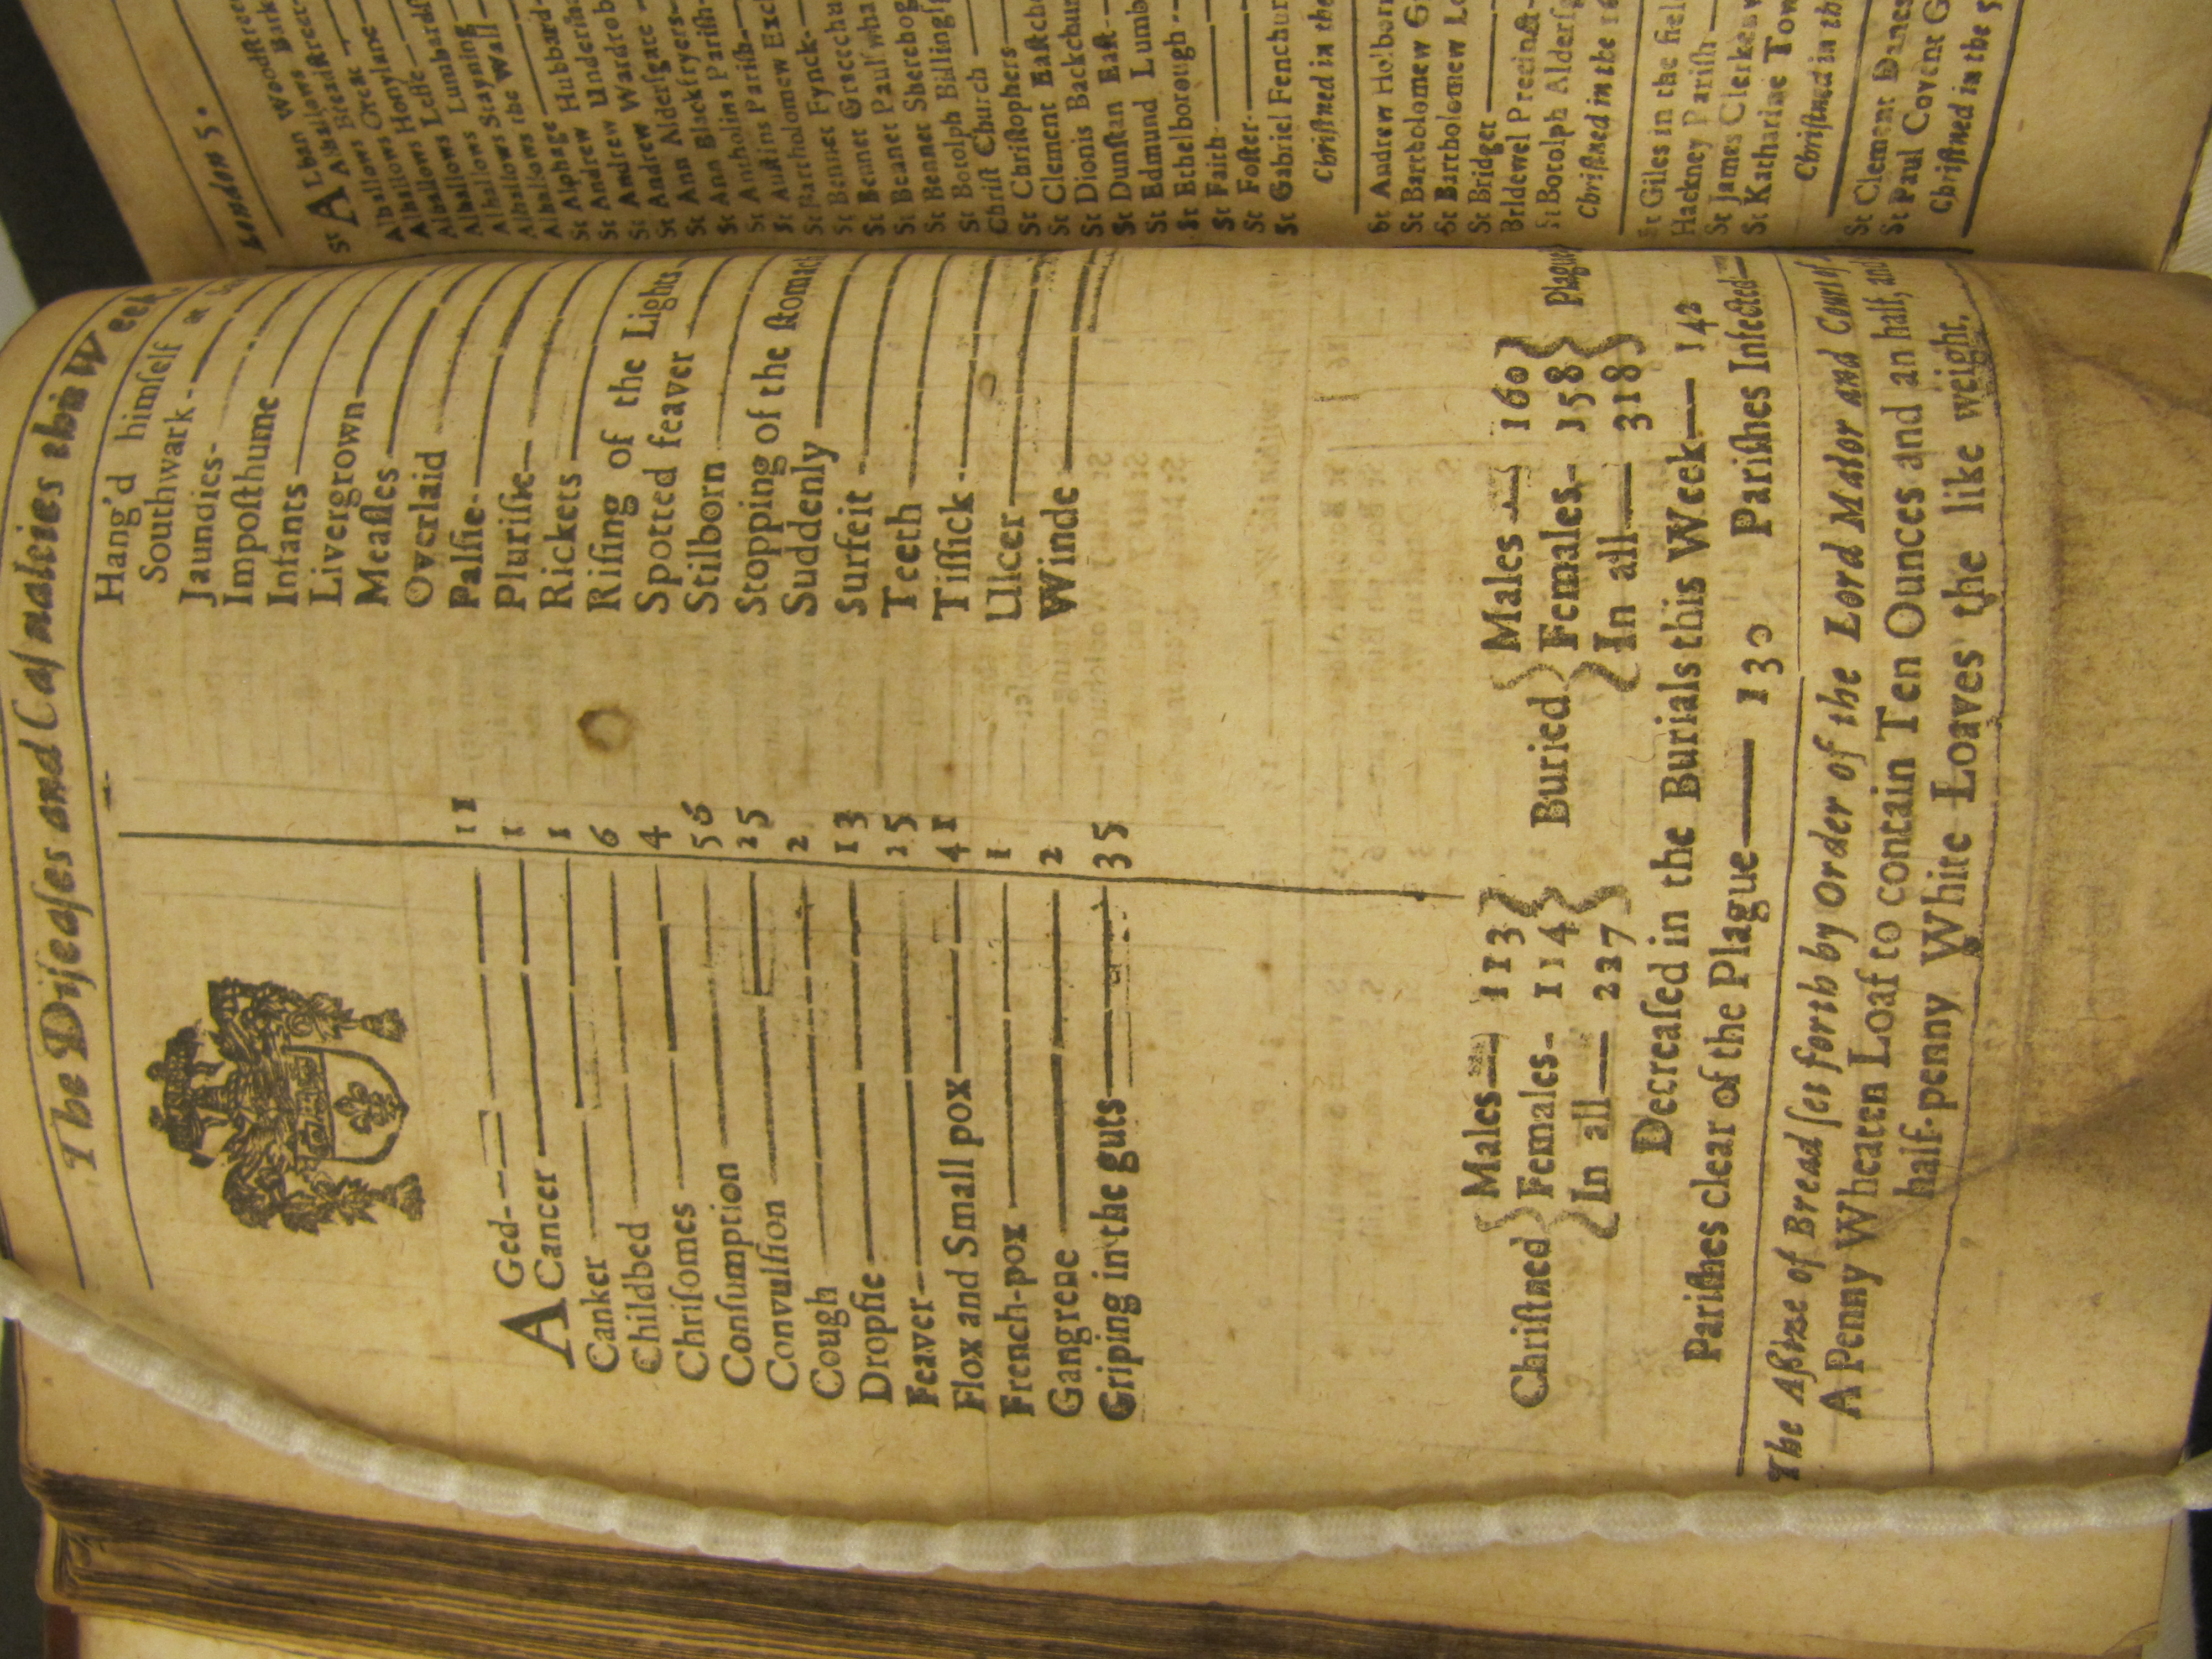 The Diſeaſes and Caſualties this Week.
AGed 11
Cancer 1
Canker 1
Childbed 6
Chriſomes 4
Conſumption 56
Convulſion 25
Cough 2
Dropſie 13
Feaver 25
Flox and Small pox 41
French-pox 1
Gangrene 2
Griping in the guts 35
Hang'd himſelf at
Southwark
Jaundies
Impoſthume
Infants
Livergrown
Meaſles
Overlaid
Palſie
Pluriſie
Rickets
Riſing of the Lights
Spotted feaver
Stilborn
Stopping of the ſtomach
Suddenly
Surfeit
Teeth
Tiſſick
Ulcer
Winde
Chriſtned Males 113 Females 114 In all 227
Buried Males 160 Females 158 In all 318 Plague
Decreaſed in the Burials this Week 142
Pariſhes clear of the Plague 130 Pariſhes Infected
The Aſsize of Bread ſet forth by Order of the Lord Maior and Court of
A Penny Wheaten Loaf to contain Ten Ounces and an half, and
half-penny White Loaves the like weight.
London 5.
St ALban Woodſtreet
Alhallows Bark
Alhallows Breadſtreet
Alhallows Great
Alhallows Honylane
Alhallows Leſſe
Alhallows Lumbardſ
Alhallows Stayning
Alhallows the Wall
St Alphage
St Andrew Hubbard
St Andrew Underſha
St Andrew Wardrob
St Ann Alderſgate
St Ann Blackfryers
St Antholins Pariſh
St Auſtins Pariſh
St Bartholomew Exch
St Bennet Fynck
St Bennet Gracechu
St Bennet Paulſwha
St Bennet Sherehog
St Botolph Billingſ
Chriſt Church
St Chriſtophers
St Clement Eaſtche
St Dionis Backchur
St Dunſtan Eaſt
St Edmund Lumb
St Ethelborough
St Faith
St Foſter
St Gabriel Fenchur
Chriſtned in the
St Andrew Holborn
St Bartholomew G
St Bartholomew Le
St Bridget
Bridewel Precinct
St Botolph Alderſg
Chriſtned in the 16
St Giles in the fiel
Hackney Pariſh
St James Clerkenw
St Katharine Tow
Chriſtned in th
St Clement Danes
St Paul Covent G
Chriſtned in the 5